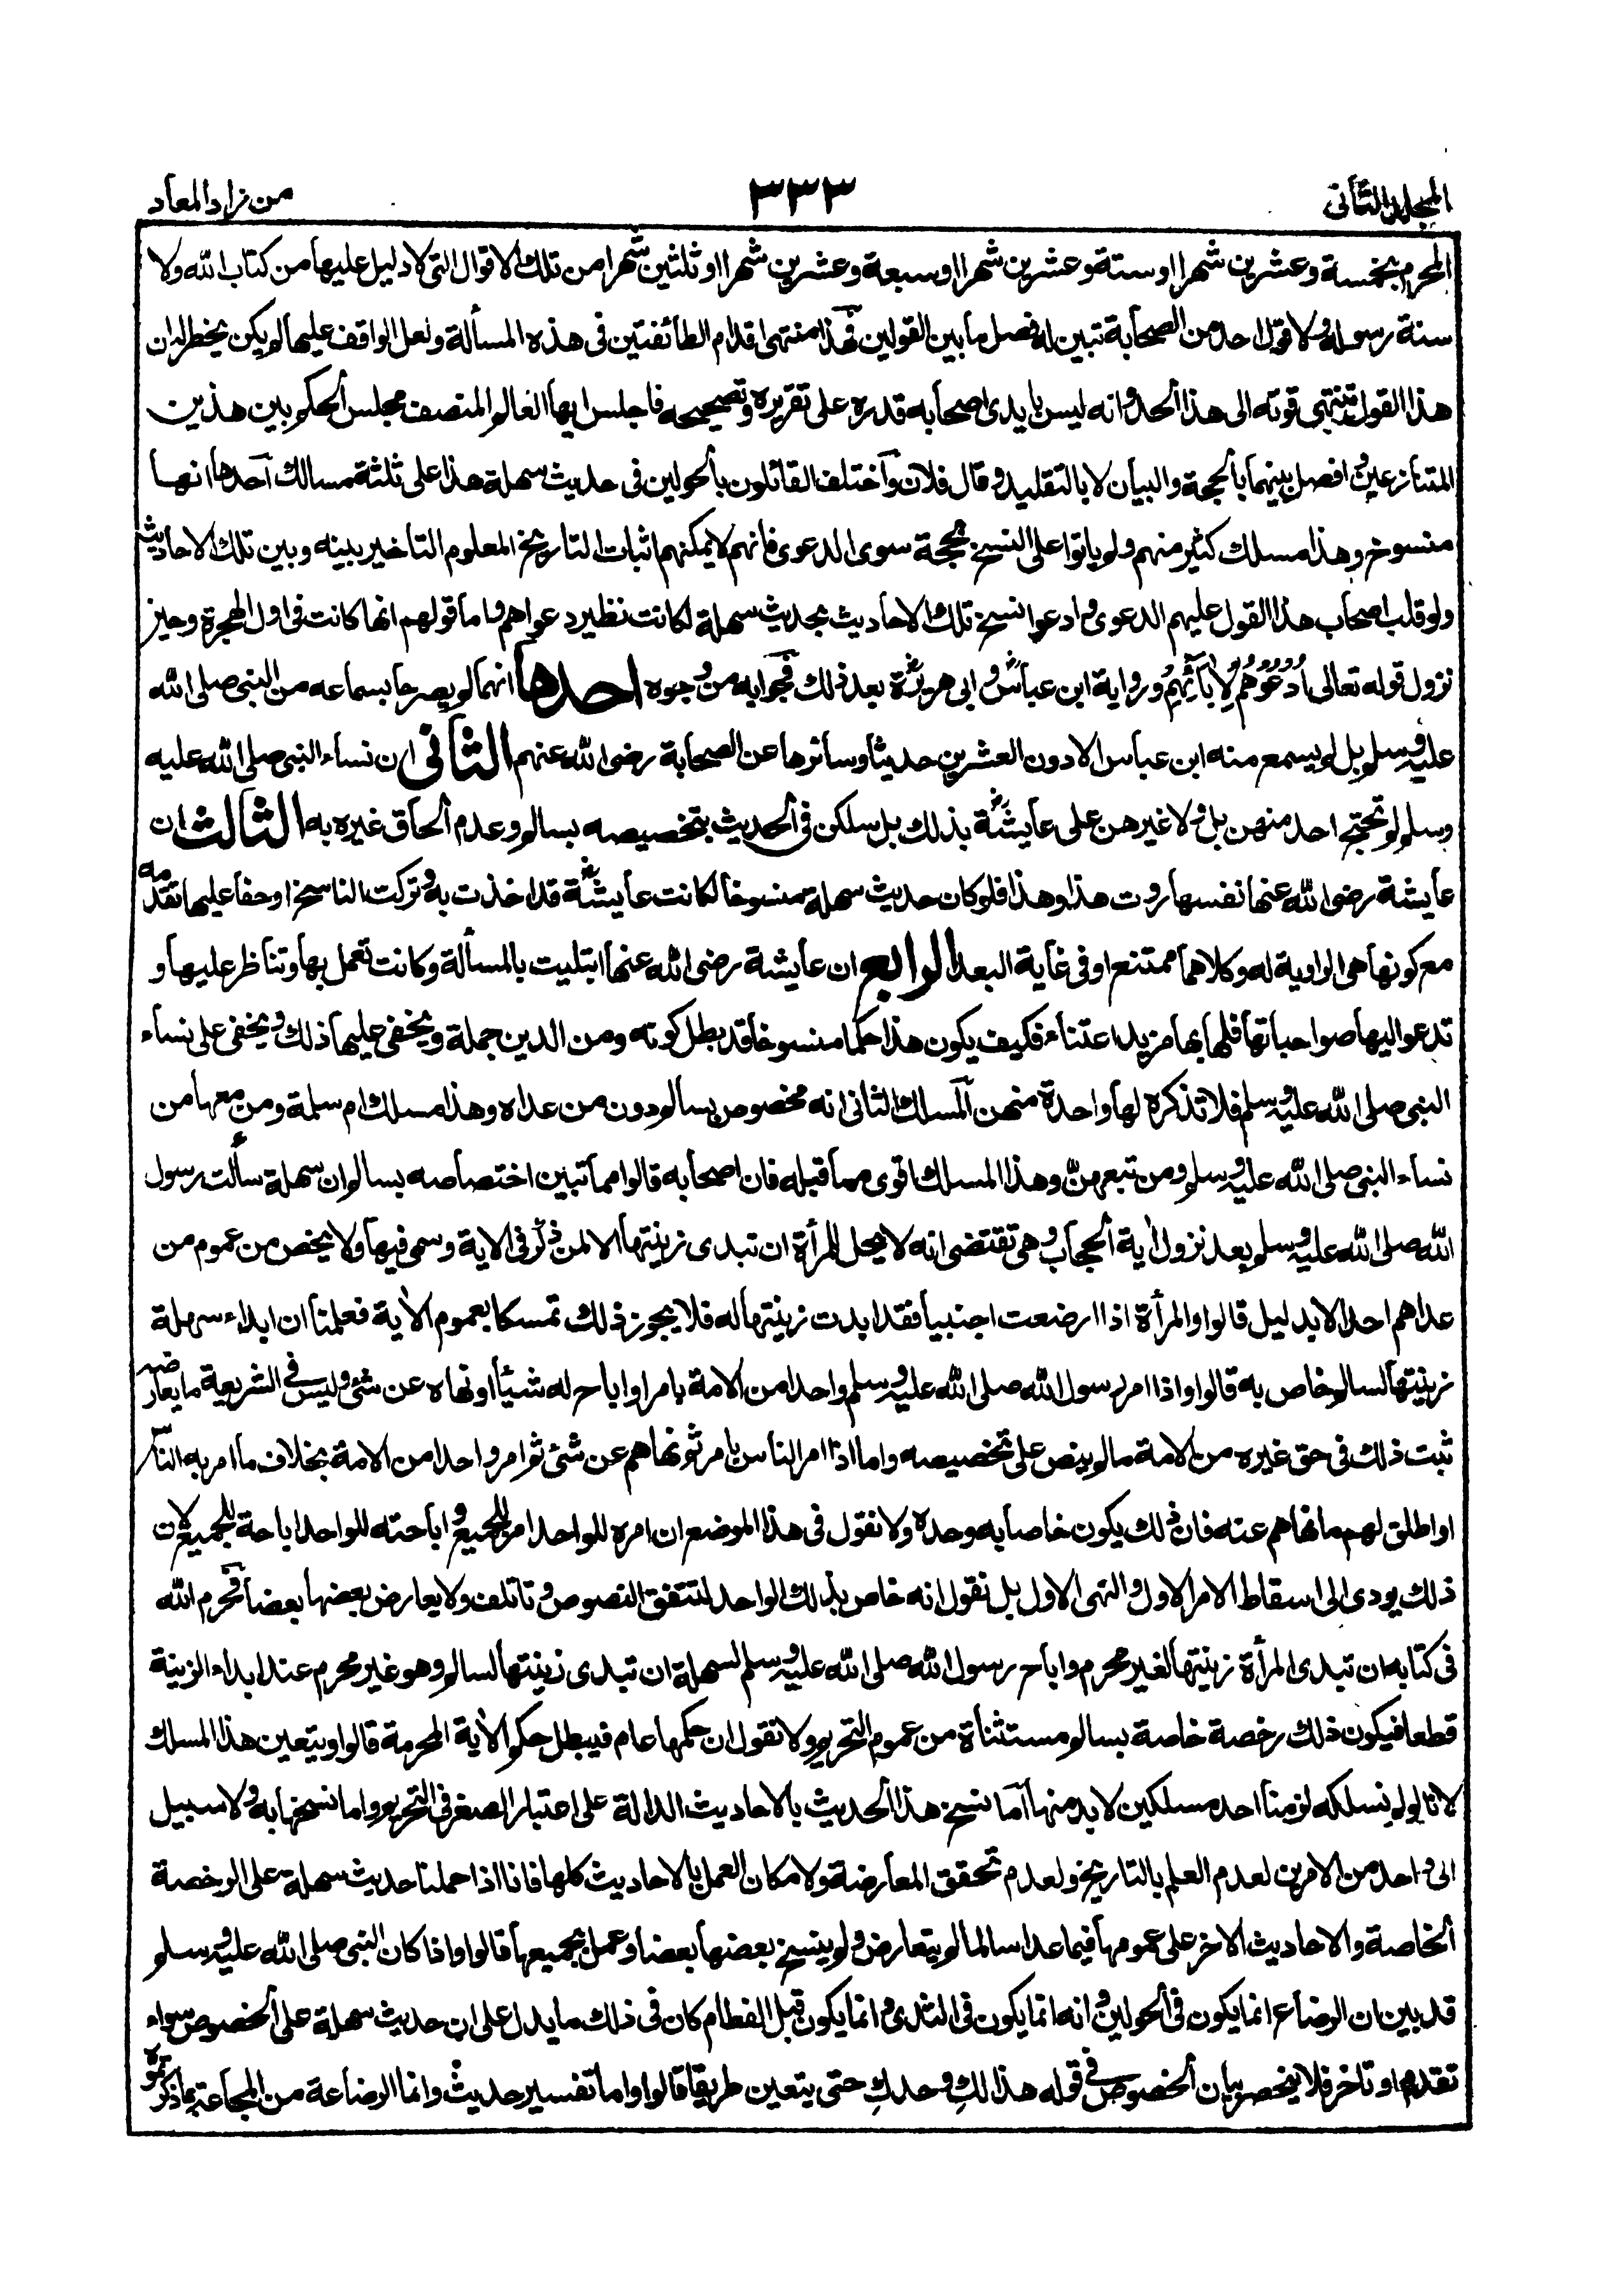 المجلد الثاني ٣٣٣ من زاد المعاد
المحرم بخمسة وعشرين شهرا او ستة وعشرين شهرا او سبعة وعشرين شهرا او ثلثين شهرا من تلك الاقوال التي لا دليل عليها من كتاب الله ولا
سنة رسوله ولا قول احد من الصحابة تبين له فصل ما بين القولين فهذا منتهى اقدام الطائفتين في هذه المسألة ولعل الواقف عليها لم يكن يخطر له ان
هذا القول تنتهي قوته الى هذا الحد وانه ليس بايدى اصحابه قدرة على تقريره وتصحيحه فاجلس ايها العالم المنصف مجلس الحكم بين هذين
المتنازعين وافصل بينهما بالحجة والبيان لا بالتقليد وقال فلان واختلف القائلون بالحولين في حديث سهلة هذا على ثلثة مسالك احدها انها
منسوخ وهذا مسلك كثير منهم ولم ياتوا على النسخ بحجة سوى الدعوى فانهم لا يمكنهم اثبات التاريخ المعلوم التاخير بينه وبين تلك الاحاديث
ولو قلب اصحاب هذا القول عليهم الدعوى وادعوا نسخ تلك الاحاديث بحديث سهلة لكانت نظير دعواهم واما قولهم انها كانت في اول الهجرة وحين
نزول قوله تعالى اُدْعُوْهُمْ لِاٰبَآئِهِمْ ورواية ابن عباسؓ وابي هريرةؓ بعد ذلك فجوابه من وجوه احدها انهما لم يصرحا بسماعه من النبي صلى الله
عليه وسلم بل لم يسمع منه ابن عباس الا دون العشرين حديثا وسائرها عن الصحابة رضى الله عنهم الثاني ان نساء النبي صلى الله عليه
وسلم لم تحتج احد منهن بل ولا غيرهن على عايشةؓ بذلك بل سلكن في الحديث بتخصيصه بسالم وعدم الحاق غيره به الثالث ان
عايشة رضى الله عنها نفسها روت هذا وهذا فلو كان حديث سهلة منسوخا لكانت عايشةؓ قد اخذت به وتركت الناسخ او خفا عليها تقدمه
مع كونها هي الراوية له وكلاهما ممتنع او في غاية البعد الرابع ان عايشة رضى الله عنها ابتليت بالمسألة وكانت تعمل بها وتناظر عليها و
تدعوا اليها صواحباتها فلها بها مزيد اعتناء فكيف يكون هذا حكما منسوخا قد بطل كونه ومن الدين جملة ويخفى عليها ذلك ويخفى على نساء
النبي صلى الله عليه وسلم فلا تذكره لها واحدة منهن المسلك الثاني انه مخصوص بسالم دون من عداه وهذا مسلك ام سلمة ومن معها من
نساء النبي صلى الله عليه وسلم ومن تبعهن وهذا المسلك اقوى مما قبله فان اصحابه قالوا مما تبين اختصاصه بسالم ان سهلة سألت رسول
الله صلى الله عليه وسلم بعد نزول اٰية الحجاب وهي تقتضى انه لا يحل للمرأة ان تبدى زينتها الا لمن ذكر في الاية وسمى فيها ولا يخص من عموم من
عداهم احد الا بدليل قالوا والمرأة اذا ارضعت اجنبيا فقد ابدت زينتها له فلا يجوز ذلك تمسكا بعموم الاٰية فعلمنا ان ابداء سهلة
زينتها لسالم خاص به قالوا واذا امر رسول الله صلى الله عليه وسلم واحدا من الامة بامر او اباح له شيئا او نهاه عن شئ وليس في الشريعة ما يعارضه
ثبت ذلك في حق غيره من الامة ما لم ينص على تخصيصه واما اذا امر الناس بامر ثم نهاهم عن شئ ثم امر واحدا من الامة بخلاف ما امر به الناس
او اطلق لهم ما نهاهم عنه فان ذلك يكون خاصا به وحده ولا نقول في هذا الموضع ان امره للواحد امر للجميع واباحته للواحد اباحة للجميع لان
ذلك يودى الى اسقاط الامر الاول والنهى الاول بل نقول انه خاص بذلك الواحد لتتفق النصوص وتاتلف ولا يعارض بعضها بعضا فحرم الله
في كتابه ان تبدى المرأة زينتها لغير محرم واباح رسول الله صلى الله عليه وسلم لسهلة ان تبدى زينتها لسالم وهو غير محرم عند ابداء الزينة
قطعا فيكون ذلك رخصة خاصة بسالم مستثناة من عموم التحريم ولا نقول ان حكمها عام فيبطل حكم الاٰية المحرمة قالوا ويتعين هذا المسلك
لانا لو لم نسلكه لزمنا احد مسلكين لا بد منها اما نسخ هذا الحديث بالاحاديث الدالة على اعتبار الصغر في التحريم واما نسخها به ولا سبيل
الى واحد من الامرين لعدم العلم بالتاريخ ولعدم تحقق المعارضة ولامكان العمل بالاحاديث كلها فانا اذا حملنا حديث سهلة على الرخصة
الخاصة والاحاديث الاخر على عمومها فيما عدا سالما لم يتعارض ولم ينسخ بعضها بعضا وعمل بجميعها قالوا واذا كان النبي صلى الله عليه وسلم
قد بين ان الرضاع انما يكون في الحولين وانه انما يكون في الثدى وانما يكون قبل الفطام كان في ذلك ما يدل على ان حديث سهلة على الخصوص سواء
تقدم او تاخر فلا ينحصر بيان الخصوص في قوله هذا لكِ وحدكِ حتى يتعين طريقا قالوا واما تفسير حديث وانما الرضاعة من المجاعة بما ذكرتموه